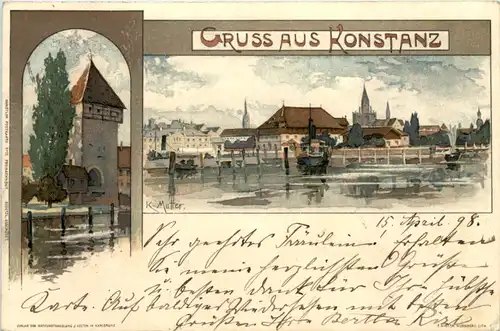 GRUSS AUS KONSTANZ
K. Mutter.
15. April. 98.
Sehr geehrtes Fräulein! Erhalten
Sie meine herzlichsten Grüße
u. besten Dank für Ihre hübsche
Karte. Auf baldiges Wiedersehen mit besten
Grüßen Ihre Bertha